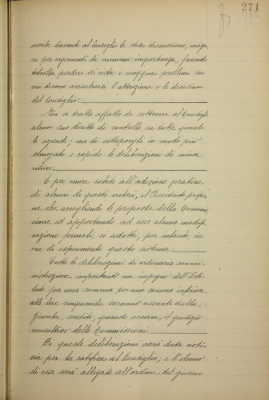 mente davanti al Consiglio le stesse discussioni, maga-
ri per argomenti di minima importanza, facendo
talvolta perdere di vista i maggiori problemi su
cui devono accentrarsi l'attenzione e le decisioni
del Consiglio.
Non si tratta affatto di sottrarre al Consiglio
alcun suo diritto di controllo su tutte quante
le aziende; ma di sottoporgli in modo più
sbrigato e rapido le deliberazioni di minor
rilievo.
E per venire subito all'adozione pratica
di alcuni di questi criteri, il Presidente propo-
ne che, accogliendo le proposte della Commis-
sione ed apportando ad esse alcune modifi-
cazioni formali, si adotti, per intanto, in
via di esperimento questo sistema:
Tutte le deliberazioni di ordinaria ammi-
nistrazione importanti un impegno dell'Isti-
tuto per una somma per una somma inferiore
alle lire cinquemila saranno assunte dalla
Giunta, sentito, quando occorra, il giudizio
consultivo delle Commissioni.
Di queste deliberazioni sarà data noti-
zia per la ratifica al Consiglio, e l'elenco
di esse sarà allegato all'ordine del giorno